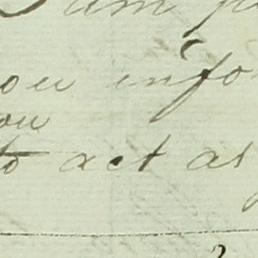 I am
ou info
ou
to act as